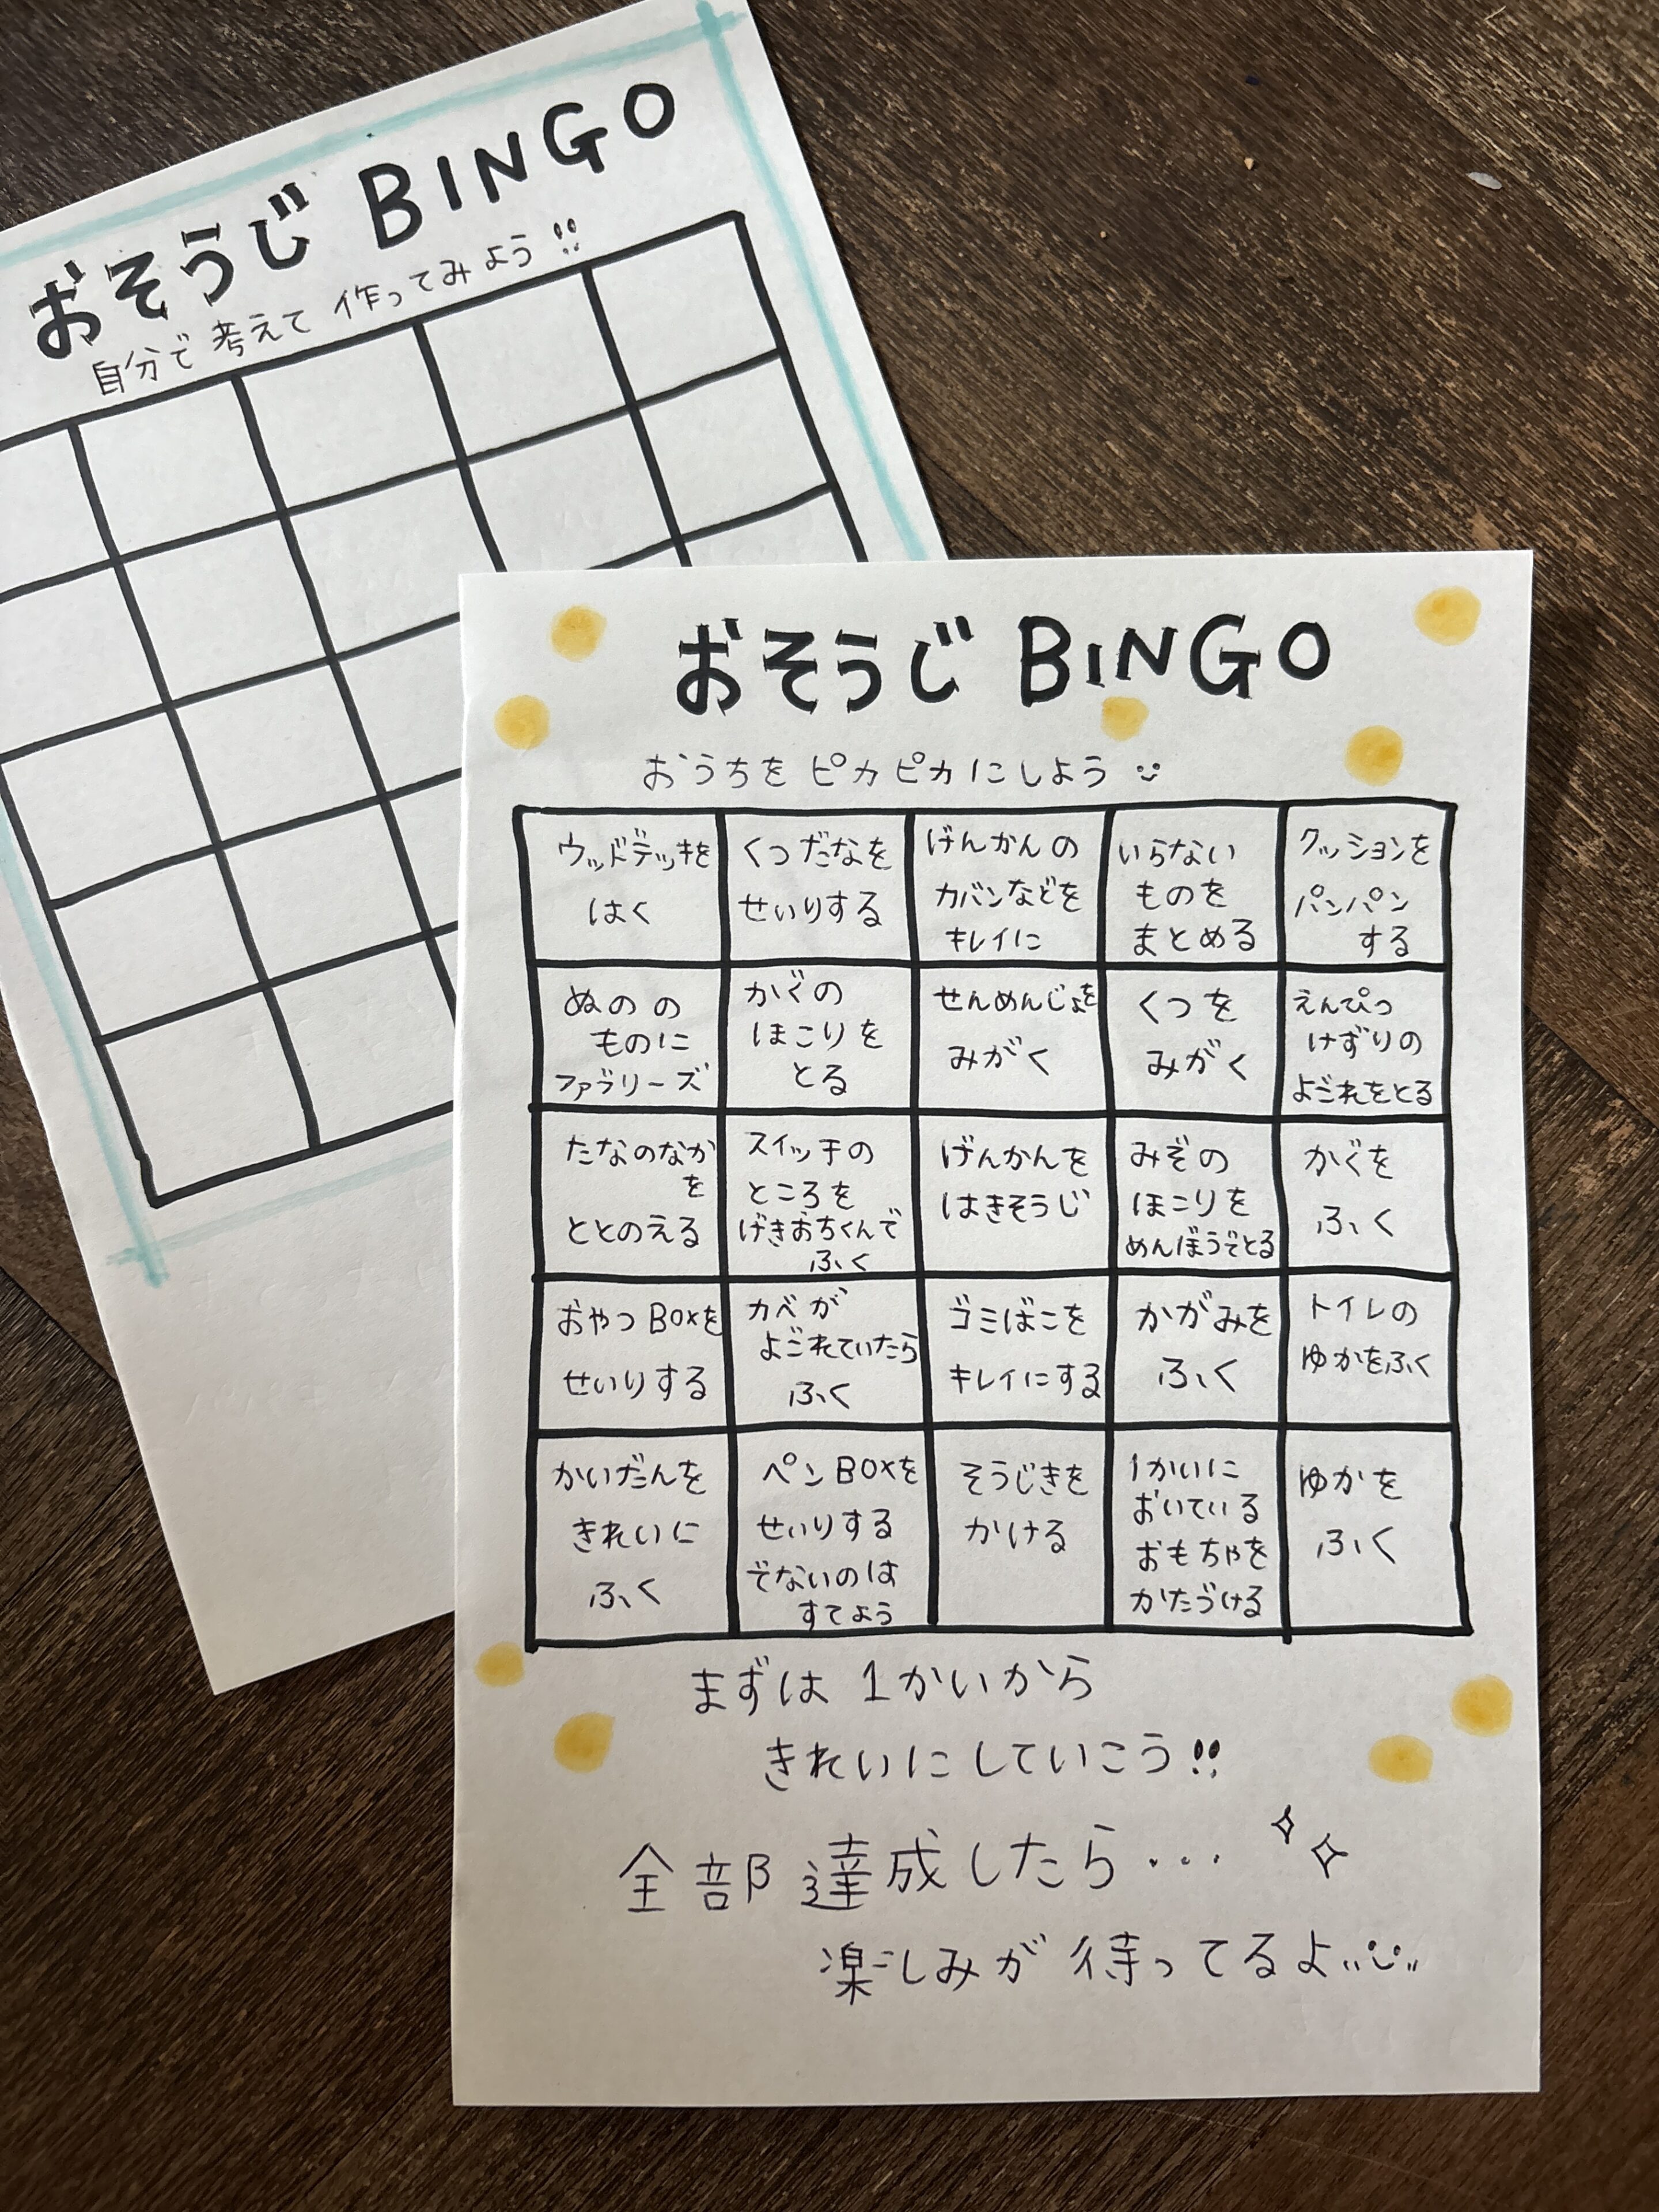 おそうじ BINGO
自分で考えて作ってみよう!!
おそうじ BINGO
おうちをピカピカにしよう
ウッドデッキを
はく
くつだなを
せいりする
げんかんの
カバンなどを
キレイに
いらない
ものを
まとめる
クッションを
パンパン
する
ぬのの
ものに
ファブリーズ
かぐの
ほこりを
とる
せんめんじょを
みがく
くつを
みがく
えんぴつ
けずりの
よごれをとる
たなのなか
を
ととのえる
スイッチの
ところを
げきおちくんで
ふく
げんかんを
はきそうじ
みぞの
ほこりを
めんぼうでとる
かぐを
ふく
おやつBOXを
せいりする
カベが
よごれていたら
ふく
ゴミばこを
キレイにする
かがみを
ふく
トイレの
ゆかをふく
かいだんを
きれいに
ふく
ペンBOXを
せいりする
でないのは
すてよう
そうじきを
かける
1かいに
おいている
おもちゃを
かたづける
ゆかを
ふく
まずは1かいから
きれいにしていこう!!
全部達成したら…
楽しみが待ってるよ